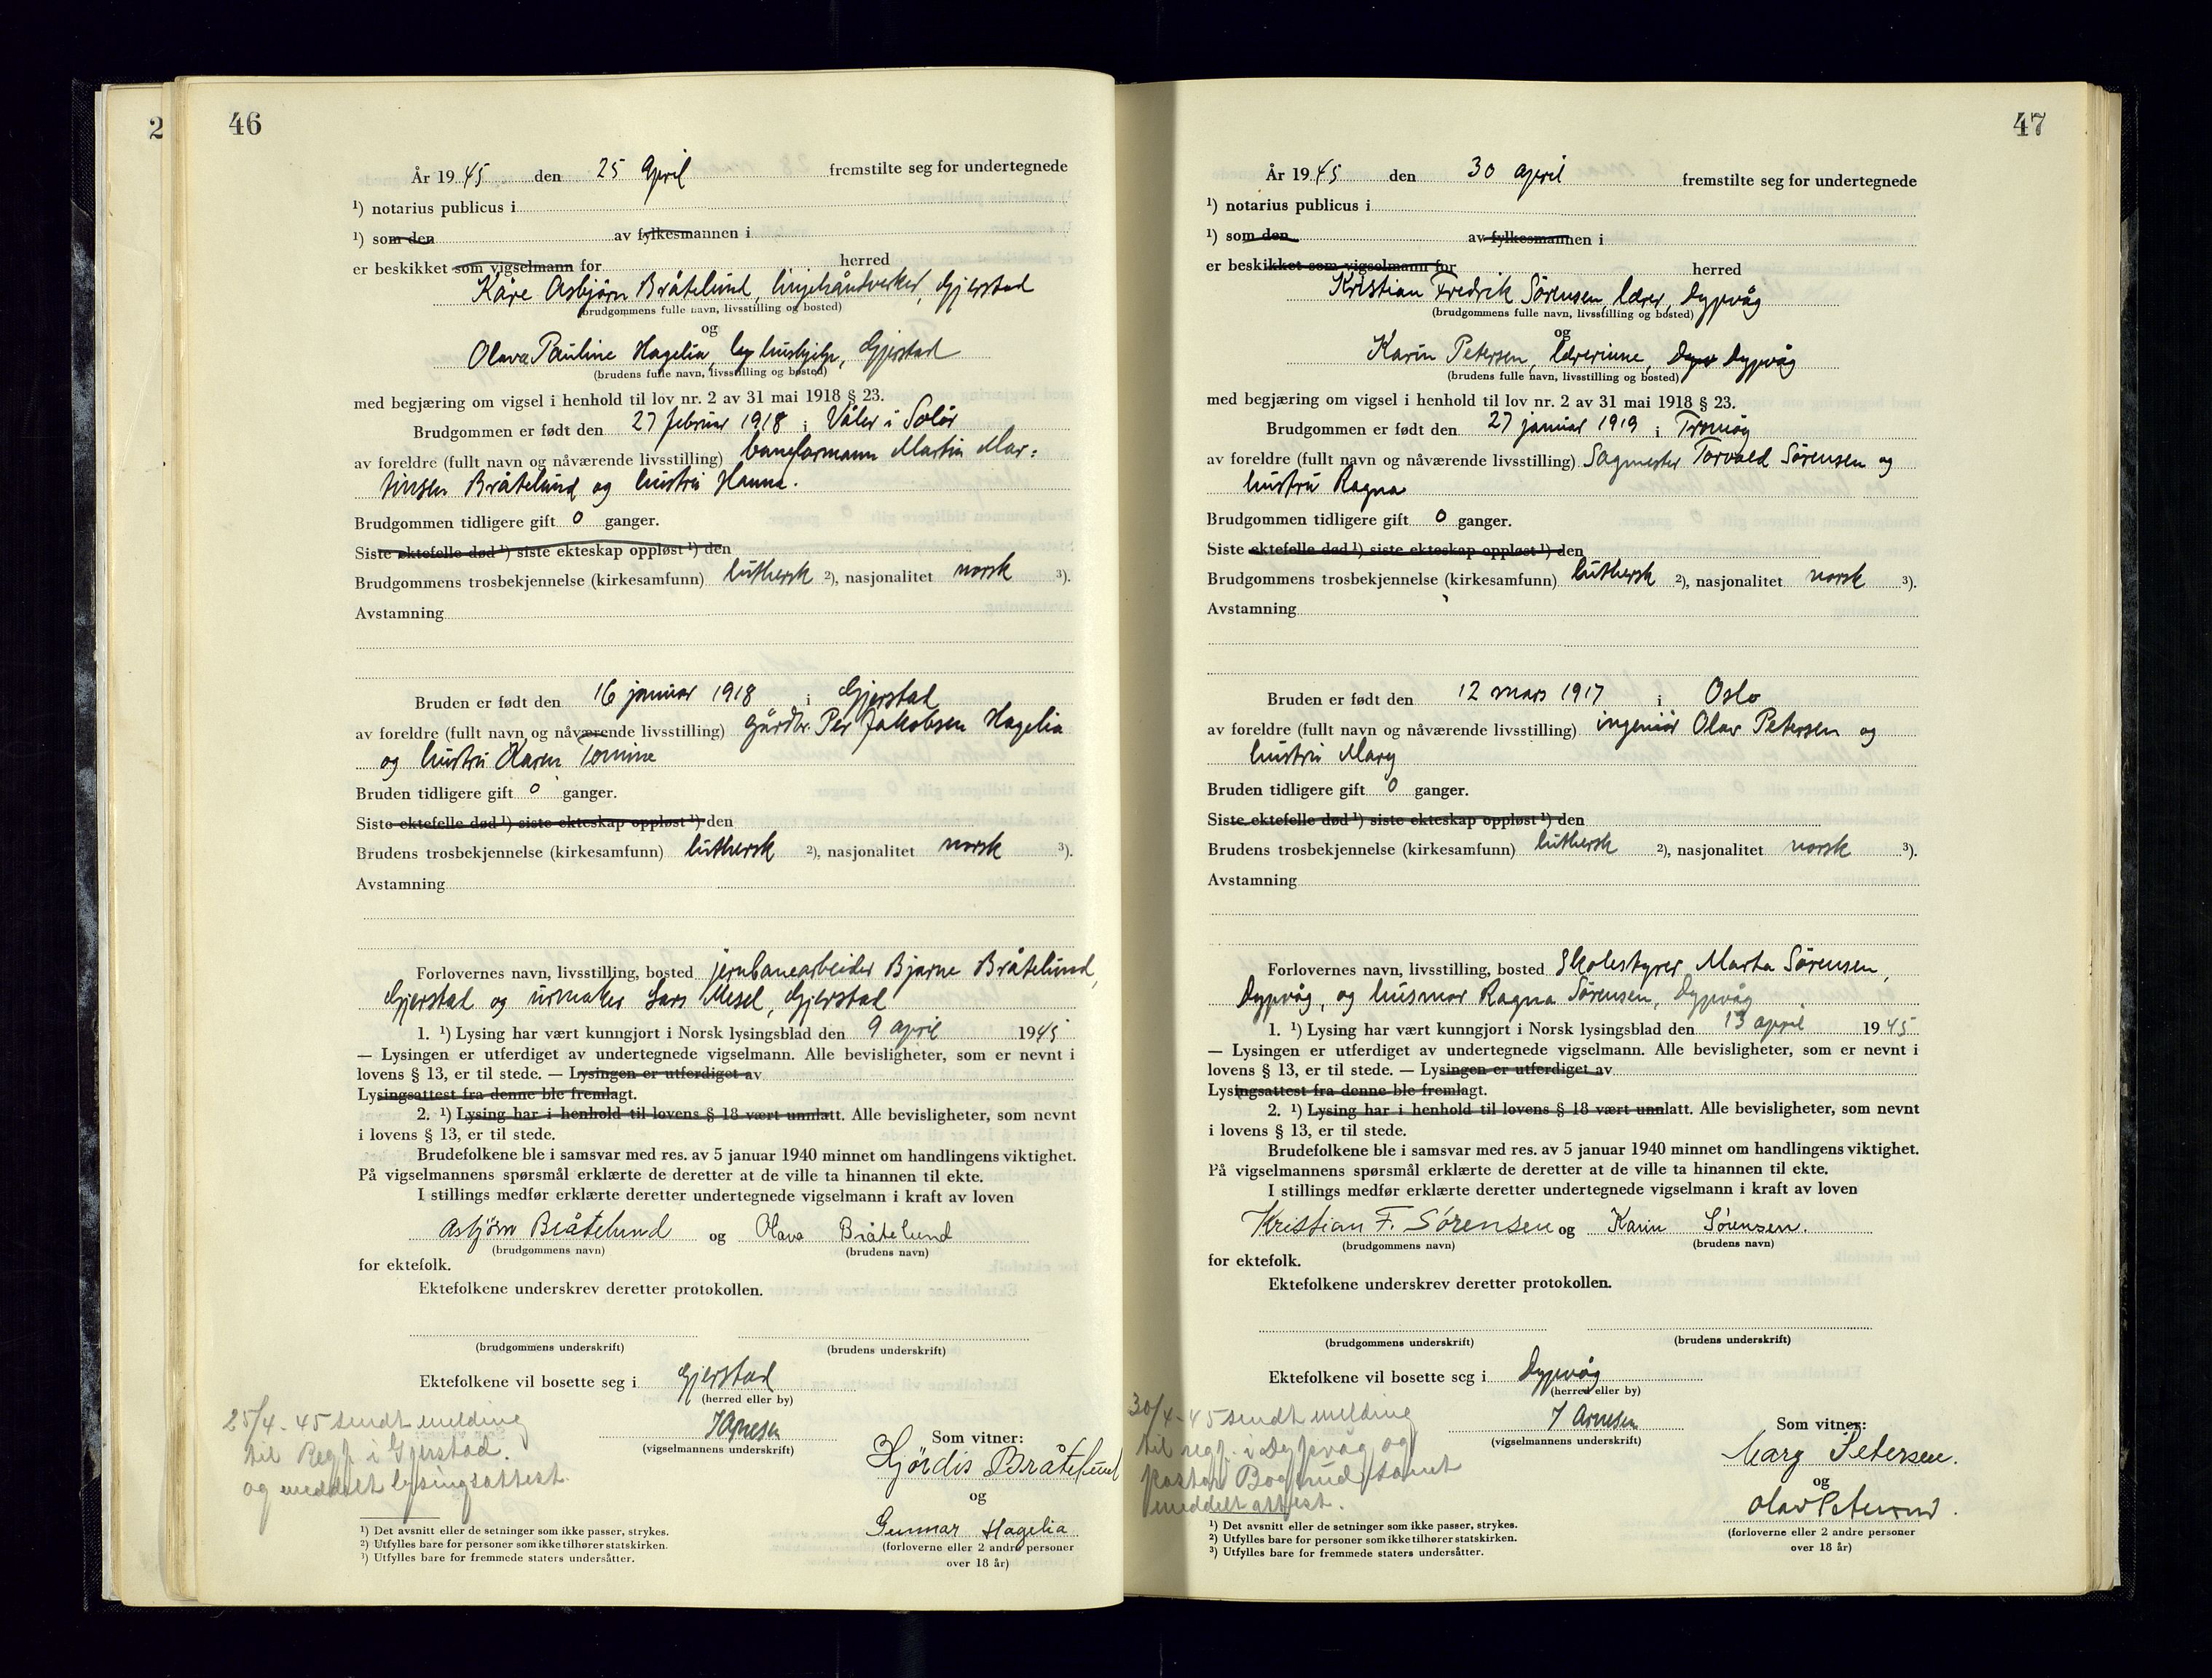 2
46
År 1945 den 25 April fremstilte seg for undertegnede
¹) notarius publicus i
¹) som den av fylkesmannen i
er beskikket som vigselmann for herred
Kåre Asbjörn Bråtelund, linjehåndverker, Gjerstad
(brudgommens fulle navn, livsstilling og bosted)
og
Olava Pauline Hagelia, hushjelp, Gjerstad
(brudens fulle navn, livsstilling og bosted)
med begjæring om vigsel i henhold til lov nr. 2 av 31 mai 1918 § 23.
Brudgommen er født den 27 februar 1918 i Våler i Solör
av foreldre (fullt navn og nåværende livsstilling) baneformann Martin Mar-
tinsen Bråtelund og hustru Hanna.
Brudgommen tidligere gift 0 ganger.
Siste ektefelle død ¹) siste ekteskap oppløst ¹) den
Brudgommens trosbekjennelse (kirkesamfunn) luthersk ²), nasjonalitet norsk ³).
Avstamning
Bruden er født den 16 januar 1918 i Gjerstad
av foreldre (fullt navn og nåværende livsstilling) gårdbr. Per Jakobsen Hagelia
og hustru Karen Tomine
Bruden tidligere gift 0 ganger.
Siste ektefelle død ¹) siste ekteskap oppløst ¹) den
Brudens trosbekjennelse (kirkesamfunn) luthersk ²), nasjonalitet norsk ³).
Avstamning
Forlovernes navn, livsstilling, bosted jernbanearbeider Bjarne Bråtelund,
Gjerstad og urmaker Lars Mesel, Gjerstad
1. ¹) Lysing har vært kunngjort i Norsk lysingsblad den 9 april 1945
— Lysingen er utferdiget av undertegnede vigselmann. Alle bevisligheter, som er nevnt i
lovens § 13, er til stede. — Lysingen er utferdiget av
Lysingsattest fra denne ble fremlagt.
2. ¹) Lysing har i henhold til lovens § 18 vært unnlatt. Alle bevisligheter, som nevnt
i lovens § 13, er til stede.
Brudefolkene ble i samsvar med res. av 5 januar 1940 minnet om handlingens viktighet.
På vigselmannens spørsmål erklærte de deretter at de ville ta hinannen til ekte.
I stillings medfør erklærte deretter undertegnede vigselmann i kraft av loven
Asbjörn Bråtelund og Olava Bråtelund
(brudgommens navn) (brudens navn)
for ektefolk.
Ektefolkene underskrev deretter protokollen.
(brudgommens underskrift) (brudens underskrift)
Ektefolkene vil bosette seg i Gjerstad
(herred eller by)
J Arnesen
(vigselmannens underskrift)
25/4-45 sendt melding
til Regf i Gjerstad.
og meddelt lysingsattest.
Som vitner:
Hjördis Bråtelund
og
Gunnar Hagelia
(forloverne eller 2 andre personer
over 18 år)
¹) Det avsnitt eller de setninger som ikke passer, strykes.
²) Utfylles bare for personer som ikke tilhører statskirken.
³) Utfylles bare for fremmede staters undersåtter.
47
År 1945 den 30 april fremstilte seg for undertegnede
¹) notarius publicus i
¹) som den av fylkesmannen i
er beskikket som vigselmann for herred
Kristian Fredrik Sörensen, lærer, Dypvåg
(brudgommens fulle navn, livsstilling og bosted)
og
Karin Petersen, lærerinne, Dypvåg
(brudens fulle navn, livsstilling og bosted)
med begjæring om vigsel i henhold til lov nr. 2 av 31 mai 1918 § 23.
Brudgommen er født den 27 januar 1919 i Tromöy
av foreldre (fullt navn og nåværende livsstilling) Sagmester Torvald Sörensen og
hustru Ragna
Brudgommen tidligere gift 0 ganger.
Siste ektefelle død ¹) siste ekteskap oppløst ¹) den
Brudgommens trosbekjennelse (kirkesamfunn) luthersk ²), nasjonalitet norsk ³).
Avstamning
Bruden er født den 12 mars 1917 i Oslo
av foreldre (fullt navn og nåværende livsstilling) ingeniör Olav Petersen og
hustru Mary
Bruden tidligere gift 0 ganger.
Siste ektefelle død ¹) siste ekteskap oppløst ¹) den
Brudens trosbekjennelse (kirkesamfunn) luthersk ²), nasjonalitet norsk ³).
Avstamning
Forlovernes navn, livsstilling, bosted Skolestyrer Marta Sörensen,
Dypvåg, og husmor Ragna Sörensen, Dypvåg
1. ¹) Lysing har vært kunngjort i Norsk lysingsblad den 13 april 1945
— Lysingen er utferdiget av undertegnede vigselmann. Alle bevisligheter, som er nevnt i
lovens § 13, er til stede. — Lysingen er utferdiget av
Lysingsattest fra denne ble fremlagt.
2. ¹) Lysing har i henhold til lovens § 18 vært unnlatt. Alle bevisligheter, som nevnt
i lovens § 13, er til stede.
Brudefolkene ble i samsvar med res. av 5 januar 1940 minnet om handlingens viktighet.
På vigselmannens spørsmål erklærte de deretter at de ville ta hinannen til ekte.
I stillings medfør erklærte deretter undertegnede vigselmann i kraft av loven
Kristian F. Sörensen og Karin Sörensen.
(brudgommens navn) (brudens navn)
for ektefolk.
Ektefolkene underskrev deretter protokollen.
(brudgommens underskrift) (brudens underskrift)
Ektefolkene vil bosette seg i Dypvåg
(herred eller by)
J Arnesen
(vigselmannens underskrift)
30/4-45 sendt melding
til regf. i Dypvåg og
pastor samt
meddelt attest.
Som vitner:
Mary Petersen.
og
Olav Petersen.
(forloverne eller 2 andre personer
over 18 år)
¹) Det avsnitt eller de setninger som ikke passer, strykes.
²) Utfylles bare for personer som ikke tilhører statskirken.
³) Utfylles bare for fremmede staters undersåtter.